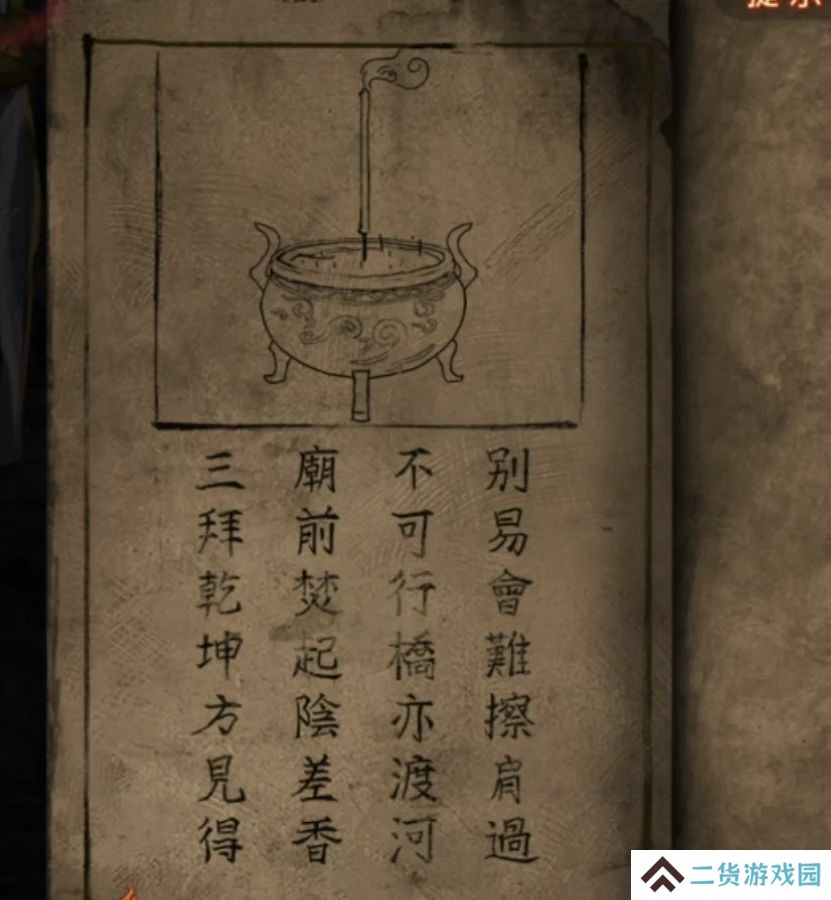 別易會難擦肩過
不可行橋亦渡河
廟前焚起陰差香
三拜乾坤方見得
二货游戏园